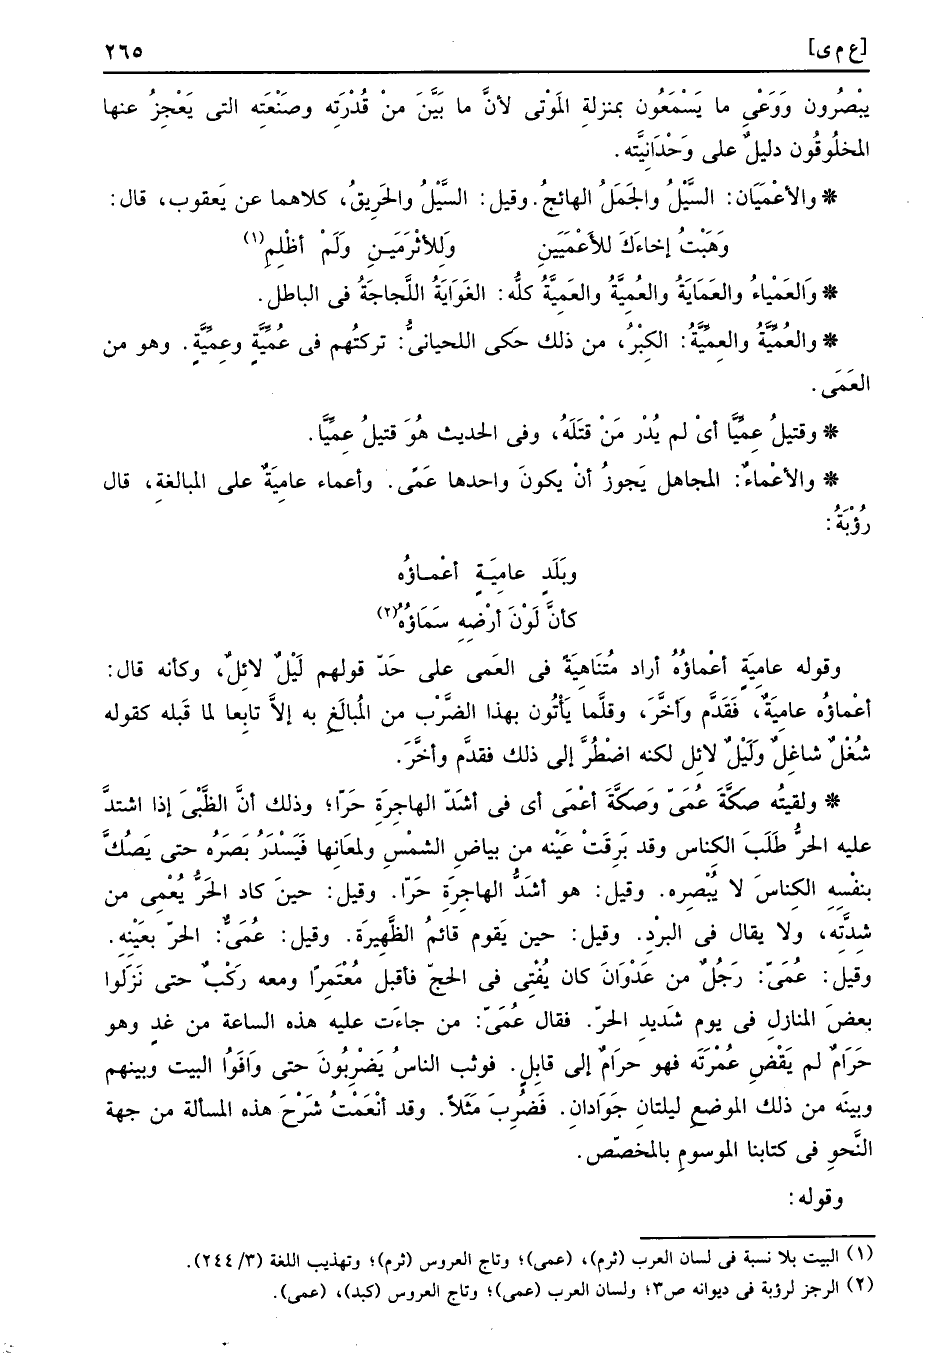 [ع م ى] ٢٦٥
يبْصُرون وَوَعْىِ ما يَسْمَعُون بمنزلة المَوْتى لأنَّ ما بَيَّنَ مِنْ قُدْرَتِه وصَنْعَتِه التى يَعْجِزُ عنها
المخلُوقُون دليلٌ على وَحْدَانيَّتِه.
* والأعْمَيَان: السَّيْلُ والجَمَلُ الهائجُ. وقيل: السَّيْلُ والحَرِيقُ، كلاهما عن يَعقوب، قال:
وَهَبْتُ إخاءَكَ للأعْمَيَينِ وَلِلأثْرَمَيـنِ وَلَمْ أظْلِمِ(١)
* وَالعَمْياءُ والعَمَايَةُ والعُمِيَّةُ والعَمِيَّةُ كلُّه: الغَوَايَةُ اللَّجاجَةُ فى الباطل.
* والعُمِّيَّةُ والعِمِّيَّةُ: الكِبْرُ، من ذلك حَكى اللحيانىُّ: تركتُهم فى عُمِّيَّةٍ وعِمِّيَّةٍ. وهو من
العَمَى.
* وقتيلُ عِمِّيَّا أىْ لم يُدْرِ مَنْ قتَلَهُ، وفى الحديث هُوَ قتيلُ عِمِّيَّا.
* والأعْماءُ: المجاهل يَجوزُ أنْ يكونَ واحدها عَمًى. وأعماء عامِيَةٌ على المبالغة، قال
رُؤْبَةُ:
وبَلَدٍ عامِيَـةٍ أعْمـاؤُه
كأنَّ لَوْنَ أرْضِهِ سَمَاؤُهُ(٢)
وقوله عامِيَةٍ أعْماؤُهُ أراد مُتَنَاهِيَةً فى العَمى على حَدّ قولهم لَيْلٌ لائلٌ، وكأنه قال:
أعْماؤُه عامِيَةٌ، فَقَدَّم وأخَّرَ، وقلَّما يَأْتُون بهذا الضَّرْب من المُبالَغِ به إلاَّ تابعا لما قَبله كقوله
شُغْلٌ شاغلٌ ولَيْلٌ لائل لكنه اضْطُرَّ إلى ذلك فقدَّم وأخَّرَ.
* ولقيتُه صَكَّةَ عُمَىّ وَصَكَّةَ أعْمَى أى فى أشَدّ الهاجرَةِ حَرّا؛ وذلك أنَّ الظَّبْىَ إذا اشتدَّ
عليه الحَرُّ طَلَبَ الكِناس وقد بَرِقَتْ عَيْنه من بياضِ الشمْسِ ولمعَانِها فَيَسْدَرُ بَصَرُه حتى يَصُكَّ
بنفْسِهِ الكِناسَ لا يُبْصِره. وقيل: هو أشَدُّ الهاجِرَةِ حَرّا. وقيل: حينَ كاد الحَرُّ يُعْمِى من
شِدَّتِه، ولا يقال فى البرْدِ. وقيل: حين يَقوم قائمُ الظَّهِيرَة. وقيل: عُمَىٌّ: الحرّ بعَيْنِهِ.
وقيل: عُمَىّ: رَجُلٌ من عَدْوَانَ كان يُفْتِى فى الحجّ فأقبل مُعْتَمِرًا ومعه رَكْبٌ حتى نَزَلوا
بعضَ المنازلِ فى يوم شَديدِ الحرّ. فقال عُمَىّ: من جاءَت عليه هذه الساعة من غدٍ وهو
حَرَامٌ لم يَقْضِ عُمْرَتَه فهو حرامٌ إلى قابلٍ. فوثب الناسُ يَضْرِبُونَ حتى وَافَوُا البيت وبينهم
وبينَه من ذلك الموضعِ ليلتانِ جَوَادانِ. فَضُرِبَ مَثَلاً. وقد أنْعَمْتُ شَرْحَ هذه المسألة من جهة
النَّحوِ فى كتابنا الموسومِ بالمخصّصِ.
وقوله:
(١) البيت بلا نسبة فى لسان العرب (ثرم)، (عمى)؛ وتاج العروس (ثرم)؛ وتهذيب اللغة (٣/ ٢٤٤).
(٢) الرجز لرؤبة فى ديوانه ص٣؛ ولسان العرب (عمى)؛ وتاج العروس (كبد)، (عمى).